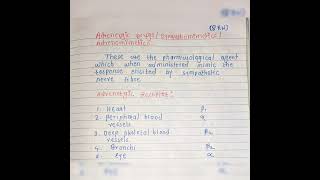 (8 KW)
Adrenergic drugs/ Sympathomimetics/
Adrenomimetics
These are the pharmacological agent
which when administered mimic the
response elicited by sympathetic
nerve fibre.
Adrenergic Receptors:
1. Heart β1
2. Peripheral blood α
vessels
3. Deep skeletal blood β2
vessels
4. Bronchi β2
5. Eye α